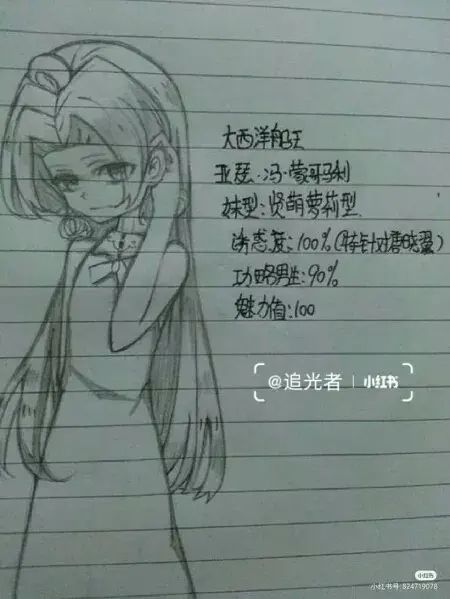 大西洋船王
亚瑟·冯·蒙哥马利
妹型:贤萌萝莉型
诱惑度:100%(特针对唐晓翼)
功略男生:90%
魅力值:100
@追光者 | 小红书
小红书
小红书号 824719078